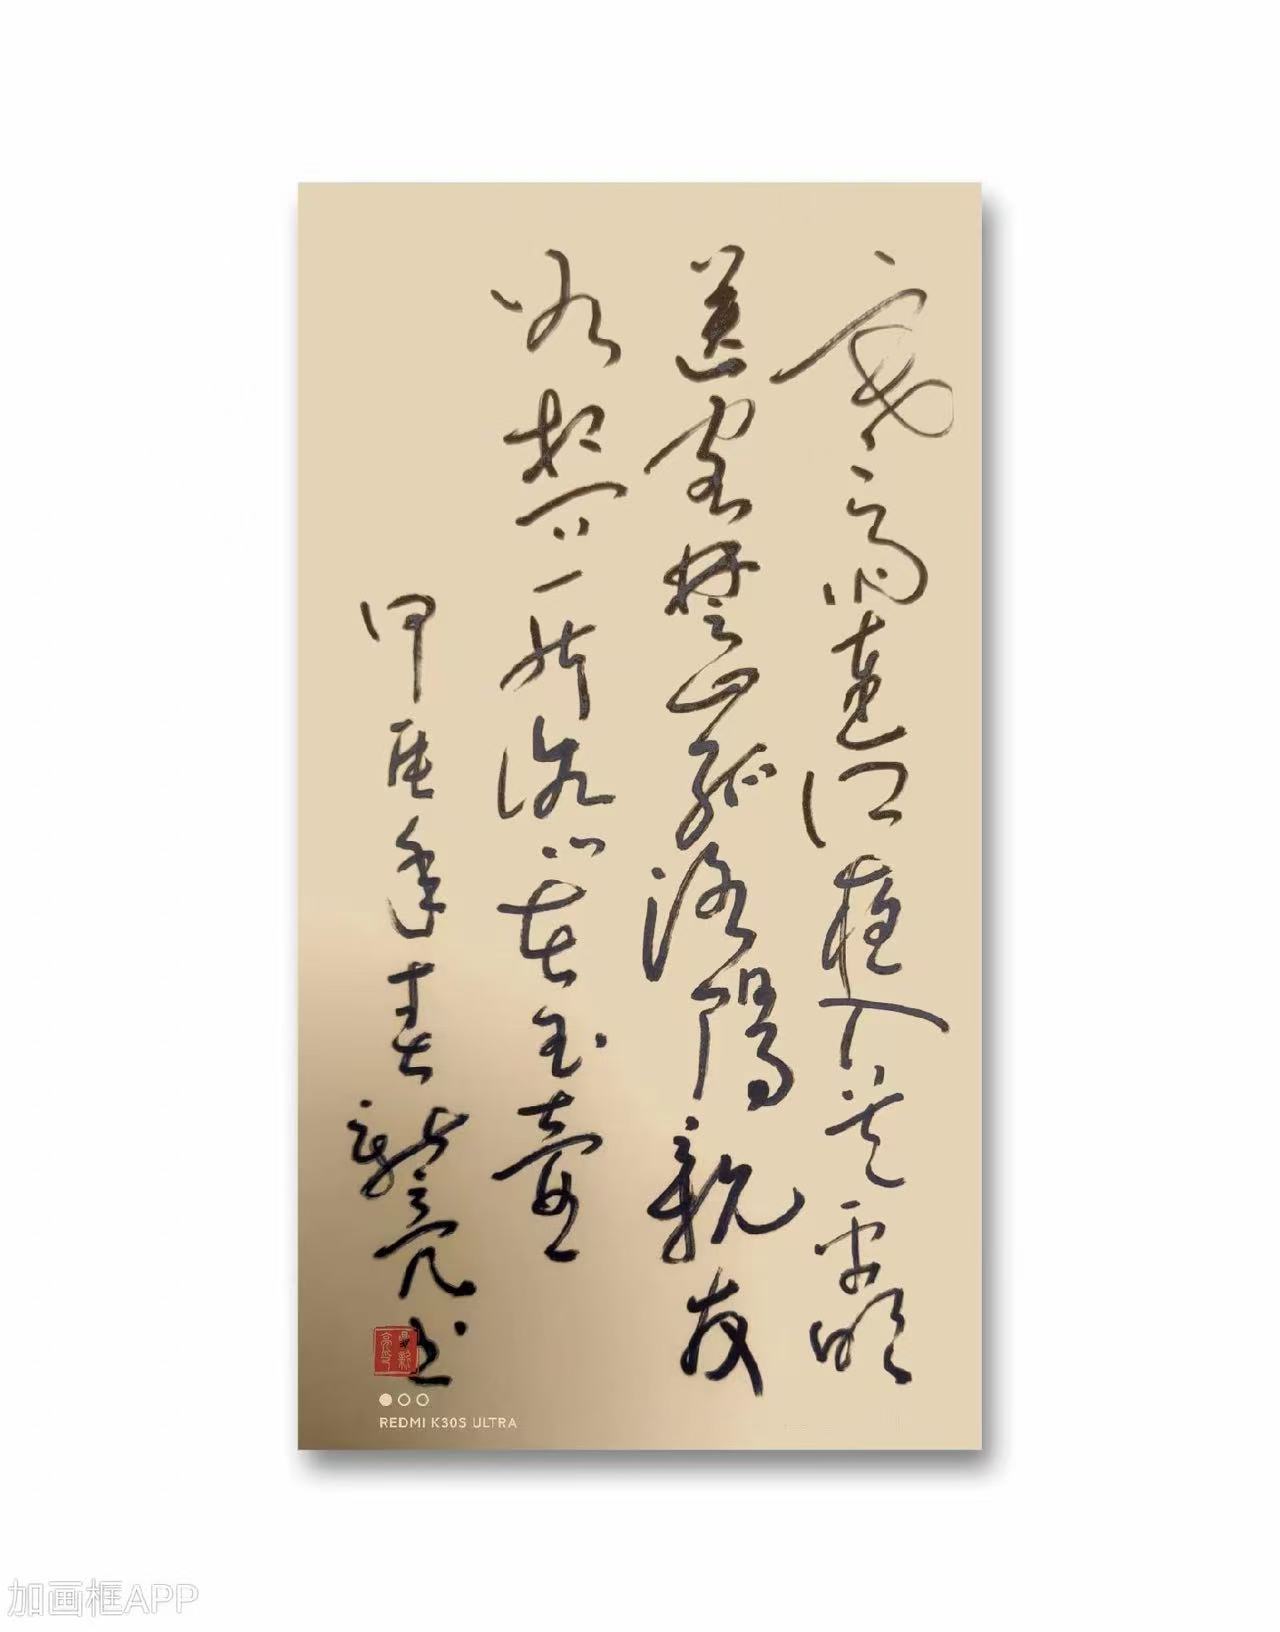 寒雨連江夜入吴平明
送客楚山孤洛陽親友
如相问一片冰心在玉壺
甲辰年春亮书
REDMI K30S ULTRA
加画框APP